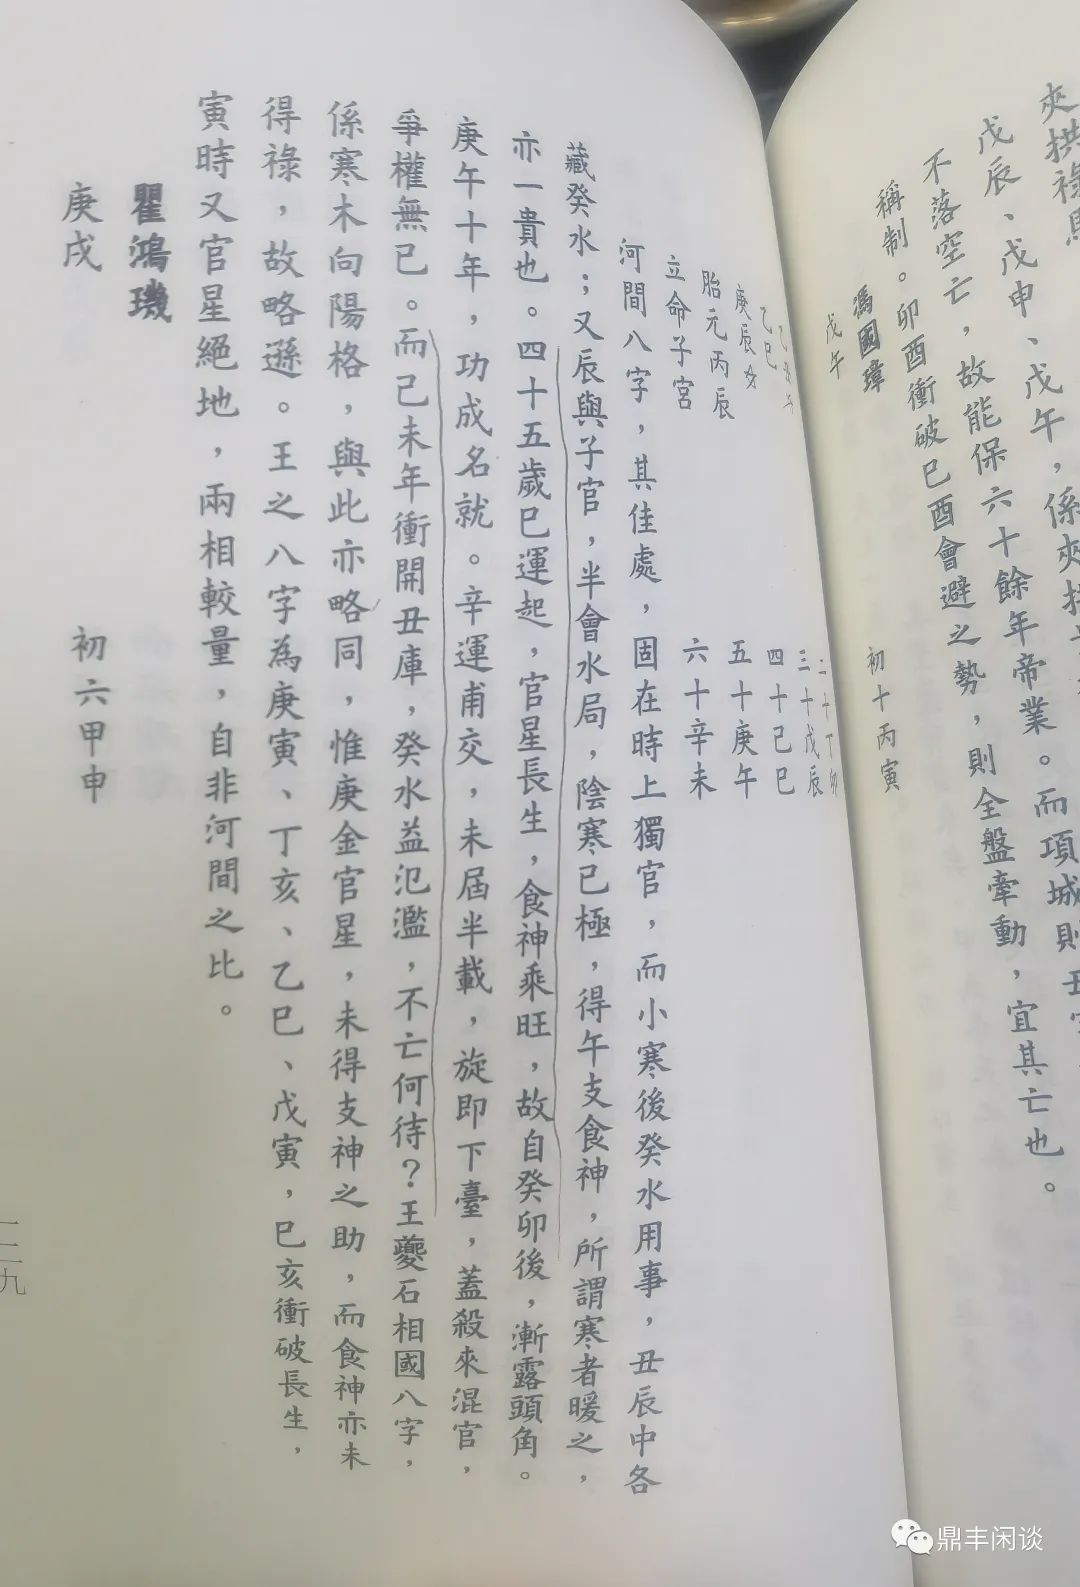 夾拱祿馬
戊辰、戊申、戊午，係夾拱
不落空亡，故能保六十餘年帝業。而項城則丑
稱制。卯酉衝破巳酉會避之勢，則全盤牽動，宜其亡也。
馮國璋
戊午　初十丙寅
二十丁卯
乙巳　三十戊辰
庚辰　四十己巳
胎元丙辰　五十庚午
立命子宮　六十辛未
河間八字，其佳處，固在時上獨官，而小寒後癸水用事，丑辰中各
藏癸水；又辰與子官，半會水局，陰寒已極，得午支食神，所謂寒者暖之，
亦一貴也。四十五歲巳運起，官星長生，食神乘旺，故自癸卯後，漸露頭角。
庚午十年，功成名就。辛運甫交，未屆半載，旋即下臺，蓋殺來混官，
爭權無已。而己未年衝開丑庫，癸水益氾濫，不亡何待？王夔石相國八字，
係寒木向陽格，與此亦略同，惟庚金官星，未得支神之助，而食神亦未
得祿，故略遜。王之八字為庚寅、丁亥、乙巳、戊寅，巳亥衝破長生，
寅時又官星絕地，兩相較量，自非河間之比。
瞿鴻璣
庚戌　初六甲申
一二九
鼎丰闲谈